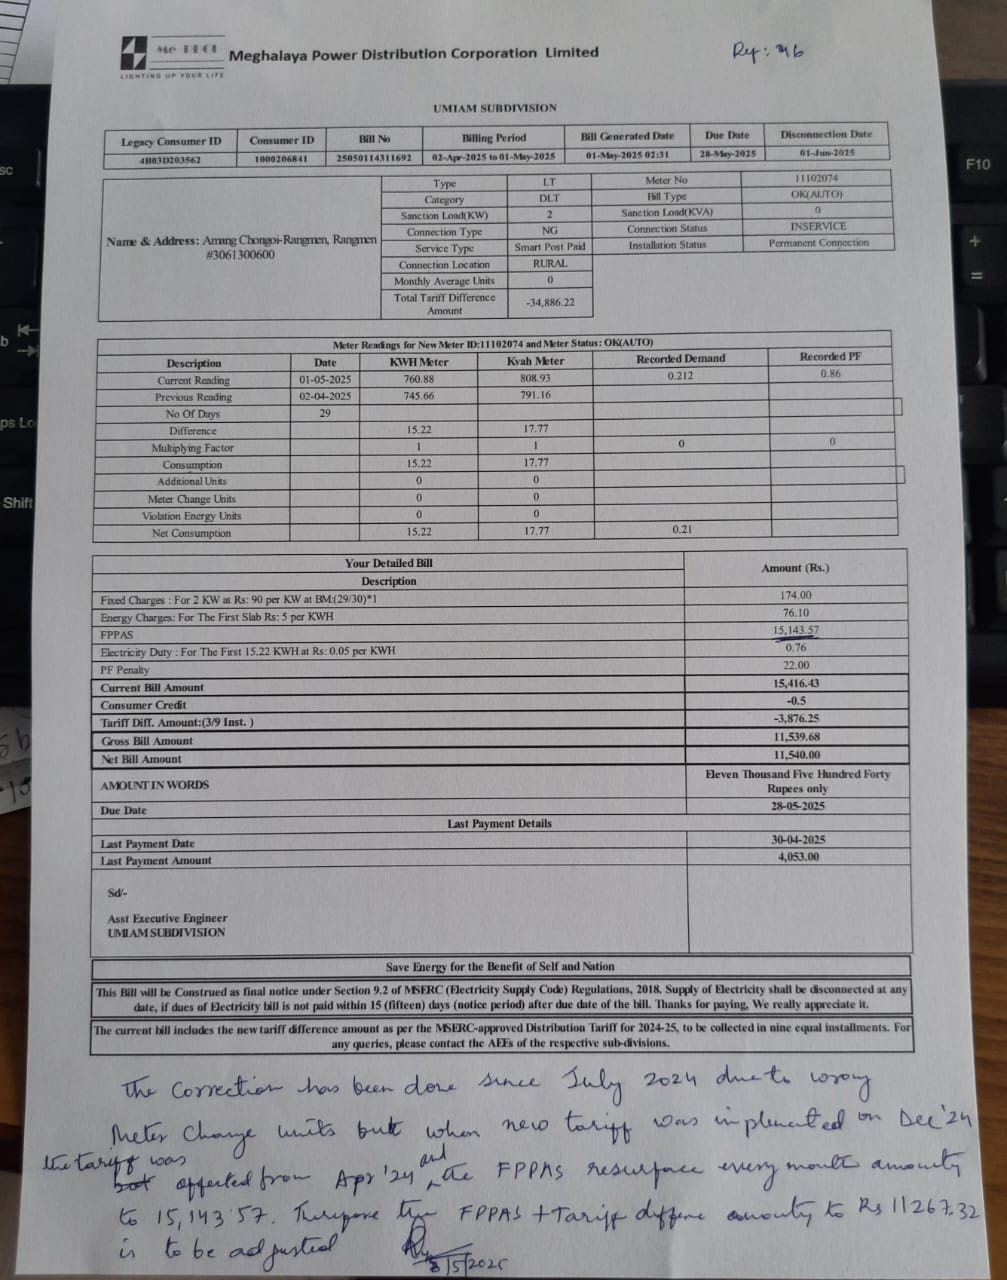 LIGHTING UP YOUR LIFE
Meghalaya Power Distribution Corporation Limited
UMIAM SUBDIVISION
Legacy Consumer ID Consumer ID Bill No Billing Period Bill Generated Date Due Date Disconnection Date
4B03D203562 1000206841 25050114311692 02-Apr-2025 to 01-May-2025 01-May-2025 02:31 28-May-2025 01-Jun-2025
Name & Address: Arning Chongoi-Rangmen, Rangmen
#3061300600
Type LT Meter No 11102074
Category DLT Bill Type OK(AUTO)
Sanction Load(KW) 2 Sanction Load(KVA) 0
Connection Type NG Connection Status INSERVICE
Service Type Smart Post Paid Installation Status Permanent Connection
Connection Location RURAL
Monthly Average Units 0
Total Tariff Difference Amount -34,886.22
Meter Readings for New Meter ID:11102074 and Meter Status: OK(AUTO)
Description Date KWH Meter Kvah Meter Recorded Demand Recorded PF
Current Reading 01-05-2025 760.88 808.93 0.212 0.86
Previous Reading 02-04-2025 745.66 791.16
No Of Days 29
Difference 15.22 17.77
Multiplying Factor 1 1 0 0
Consumption 15.22 17.77
Additional Units 0 0
Meter Change Units 0 0
Violation Energy Units 0 0
Net Consumption 15.22 17.77 0.21
Your Detailed Bill
Description Amount (Rs.)
Fixed Charges : For 2 KW at Rs: 90 per KW at BM:(29/30)*1 174.00
Energy Charges: For The First Slab Rs: 5 per KWH 76.10
FPPAS 15,143.57
Electricity Duty : For The First 15.22 KWH at Rs: 0.05 per KWH 0.76
PF Penalty 22.00
Current Bill Amount 15,416.43
Consumer Credit -0.5
Tariff Diff. Amount:(3/9 Inst. ) -3,876.25
Gross Bill Amount 11,539.68
Net Bill Amount 11,540.00
AMOUNT IN WORDS Eleven Thousand Five Hundred Forty Rupees only
Due Date 28-05-2025
Last Payment Details
Last Payment Date 30-04-2025
Last Payment Amount 4,053.00
Sd/-
Asst Executive Engineer
UMIAM SUBDIVISION
Save Energy for the Benefit of Self and Nation
This Bill will be Construed as final notice under Section 9.2 of MSERC (Electricity Supply Code) Regulations, 2018. Supply of Electricity shall be disconnected at any
date, if dues of Electricity bill is not paid within 15 (fifteen) days (notice period) after due date of the bill. Thanks for paying, We really appreciate it.
The current bill includes the new tariff difference amount as per the MSERC-approved Distribution Tariff for 2024-25, to be collected in nine equal installments. For
any queries, please contact the AEEs of the respective sub-divisions.
The correction has been done since July 2024 due to wrong
Meter change units but when new tariff was implented on Dec'24
the tariff was affected from Apr '24 and the FPPAS resurface every month amounty
to 15,143.57. Therefore the FPPAS + Tariff differe amounty to Rs 11267.32
is to be adjusted
8/5/2025
F10
Shift